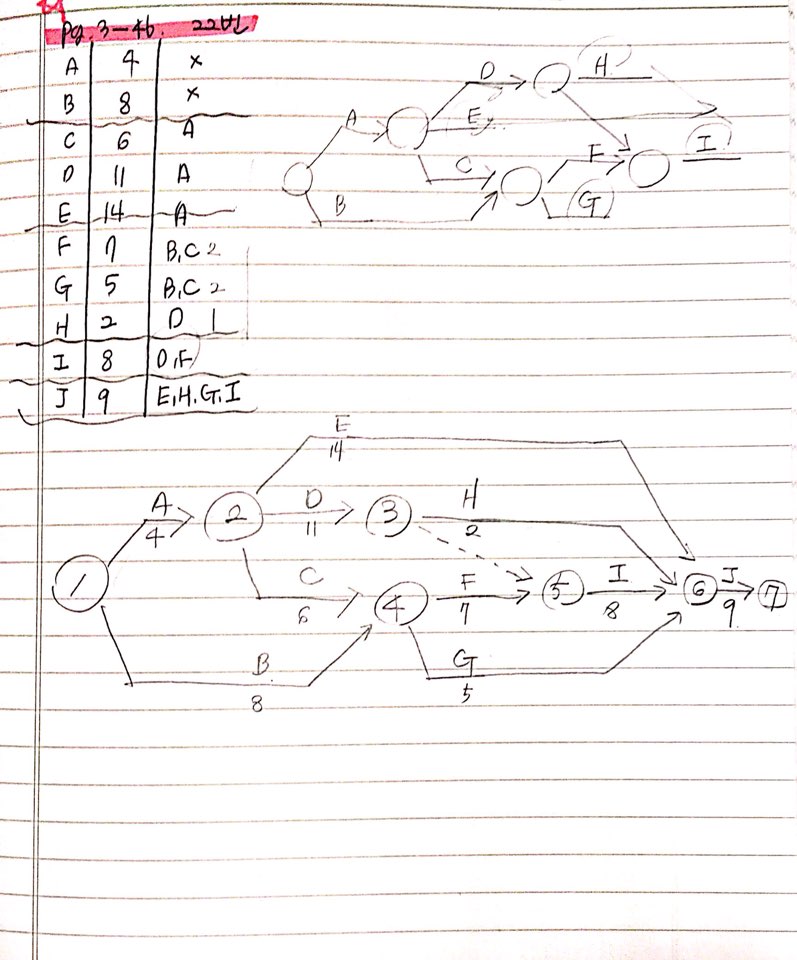 Pg. 3-46. 22번
A 4 ×
B 8 ×
C 6 A
D 11 A
E 14 A
F 7 B,C 2
G 5 B,C 2
H 2 D 1
I 8 D,F
J 9 E,H,G,I
D H
A E
C F I
B G
E
14
A D H
4 2 11 3 2
1 C F I J
6 4 7 5 8 6 9 7
B G
8 5